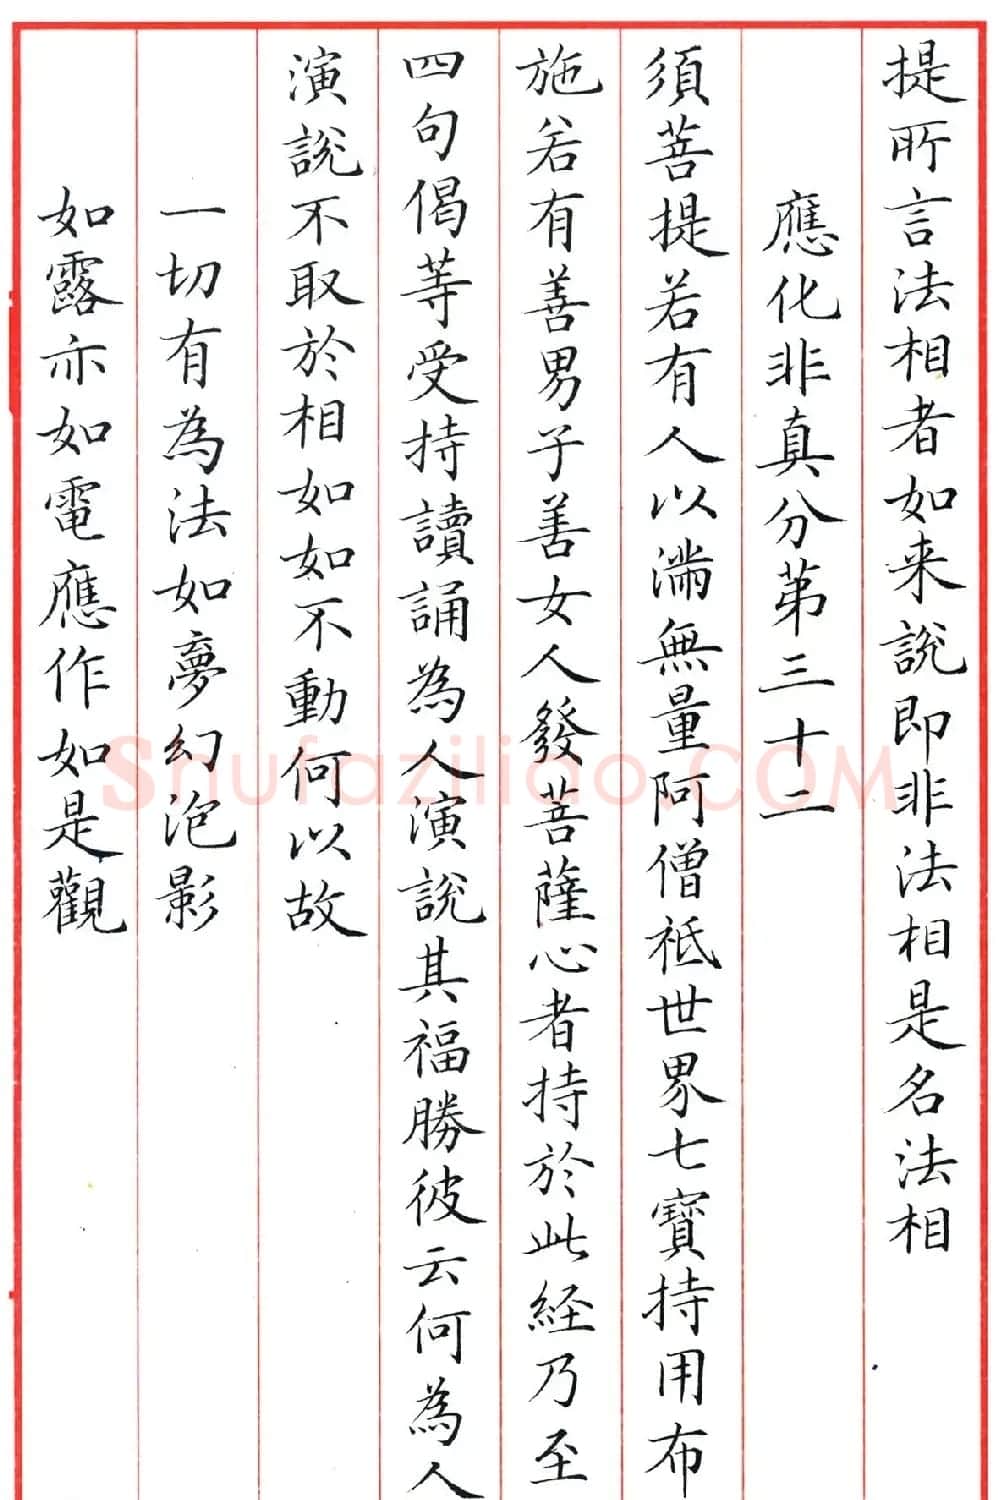 提所言法相者如来說即非法相是名法相
應化非真分第三十二
須菩提若有人以滿無量阿僧祇世界七寶持用布
施若有善男子善女人發菩薩心者持於此経乃至
四句偈等受持讀誦為人演說其福勝彼云何為人
演說不取於相如如不動何以故
一切有為法如夢幻泡影
如露亦如電應作如是觀
Shufaziliao.COM